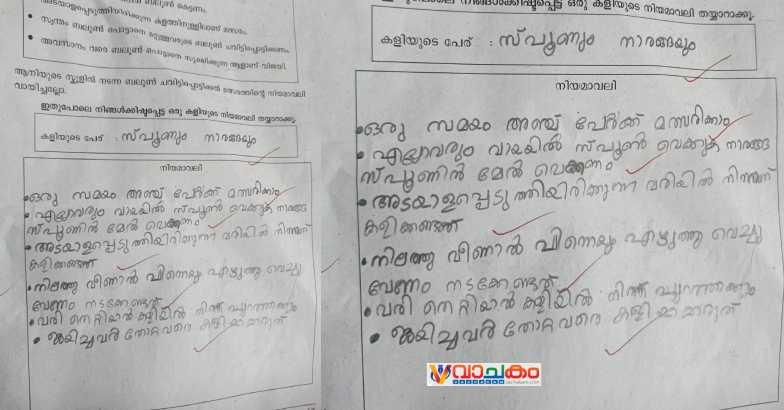 കെട്ടണം.
അടയാളപ്പെടുത്തിയിരിക്കുന്ന കളത്തിനുള്ളിലാണ് മത്സരം.
• സ്വന്തം ബലൂൺ പൊട്ടാതെ മറ്റുള്ളവരുടെ ബലൂൺ ചവിട്ടിപ്പൊട്ടിക്കണം.
• അവസാനം വരെ ബലൂൺ പൊട്ടാതെ സൂക്ഷിക്കുന്ന ആളാണ് വിജയി.
ആനിയുടെ സ്കൂളിൽ നടന്ന ബലൂൺ ചവിട്ടിപ്പൊട്ടിക്കൽ മത്സരത്തിന്റെ നിയമാവലി
വായിച്ചല്ലോ.
ഇതുപോലെ നിങ്ങൾക്കിഷ്ടപ്പെട്ട ഒരു കളിയുടെ നിയമാവലി തയ്യാറാക്കൂ.
കളിയുടെ പേര് : സ്പൂണും നാരങ്ങയും
നിയമാവലി
• ഒരു സമയം അഞ്ച് പേർക്ക് മത്സരിക്കാം
• എല്ലാവരും വായയിൽ സ്പൂൺ വെക്കുക നാരങ്ങ
സ്പൂണിൻ മേൽ വെക്കണം
• അടയാളപ്പെടുത്തിയിരിക്കുന്ന വരിയിൽ നിന്നാണ്
കളിക്കണ്ടത്ത്
• നിലത്തു വീണാൽ പിന്നെയും എഴുത്തു വെച്ചു
വേണം നടക്കേണ്ടത്
• വരി തെറ്റിയാൽ കളിയിൽ നിന്ന് പുറത്താക്കും
• ജയിച്ചവർ തോറ്റവരെ കളിയാക്കരുത്
ഇതുപോലെ നിങ്ങൾക്കിഷ്ടപ്പെട്ട ഒരു കളിയുടെ നിയമാവലി തയ്യാറാക്കൂ.
കളിയുടെ പേര് : സ്പൂണും നാരങ്ങയും
നിയമാവലി
• ഒരു സമയം അഞ്ച് പേർക്ക് മത്സരിക്കാം
• എല്ലാവരും വായയിൽ സ്പൂൺ വെക്കുക നാരങ്ങ
സ്പൂണിൻ മേൽ വെക്കണം
• അടയാളപ്പെടുത്തിയിരിക്കുന്ന വരിയിൽ നിന്നാണ്
കളിക്കണ്ടത്ത്
• നിലത്തു വീണാൽ പിന്നെയും എഴുത്തു വെച്ചു
വേണം നടക്കേണ്ടത്
• വരി തെറ്റിയാൽ കളിയിൽ നിന്ന് പുറത്താക്കും
• ജയിച്ചവർ തോറ്റവരെ കളിയാക്കരുത്
വാചകം